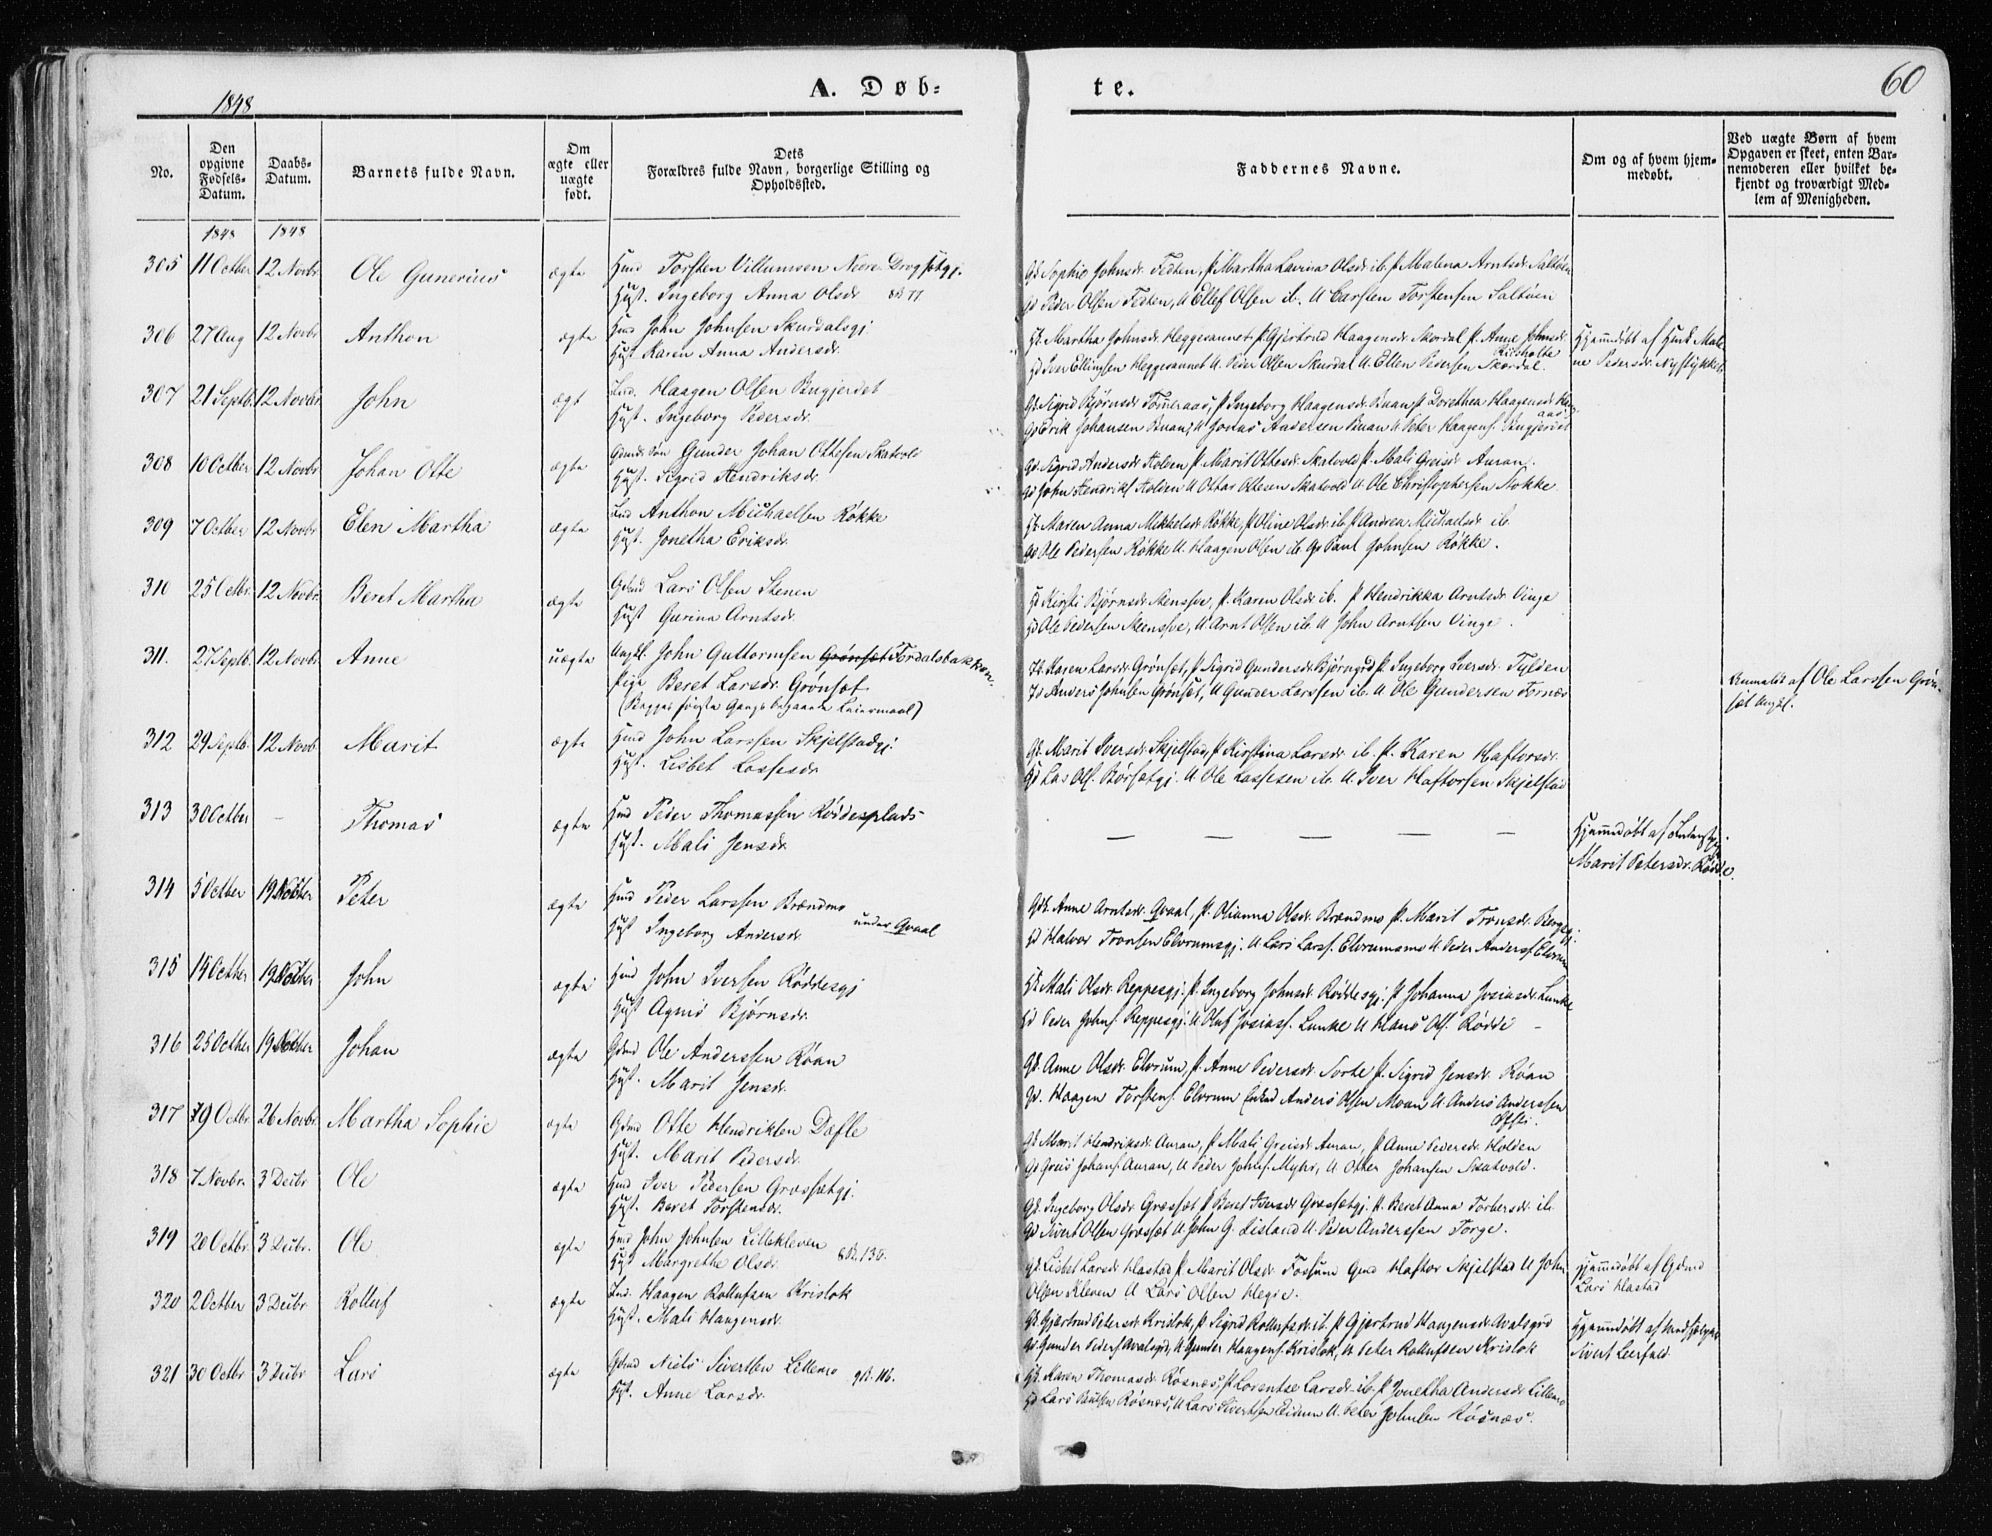 1848
A. Døb-
te.
60
No.
Den opgivne Fødsels-Datum.
Daabs-Datum.
Barnets fulde Navn.
Om ægte eller uægte født.
Dets Forældres fulde Navn, borgerlige Stilling og Opholdssted.
Faddernes Navne.
Om og af hvem hjemmedøbt.
Ved uægte Børn af hvem Opgaven er skeet, enten Barnemoderen eller hvilket bekjendt og troværdigt Medlem af Menigheden.
1848 1848
305 11 Octber 12 Novbr Ole Gunerius ægte Hmd Torsten Villumsen
Hust. Ingeborg Anna Olsdr
Gd. Sophie Johnsdr. Festen, P. Martha Lavina Olsdr ib. P. Malena Arntsdr Saltøen
Gd Peder Olsen Festen, U Ellef Olsen ib. U Carsten Torstensen Saltøen
306 27 Aug 12 Novbr Anthon ægte Hmd John Johnsen Skurdalsgj
Hust. Karen Anna Andersdr.
Hd. Martha Johnsdr. Heggesannet P. Gjertrud Haagensdr. Skordal P. Anne Johnsdr.
Hd Iver Ellingsen Heggesannet U. Peder Olsen Skurdal U. Ellen Pedersen Skordal.
Hjemmedøbt af Hust. Malene Pedersdr. Nystykket
307 21 Septb. 12 Novbr John ægt Ind. Haagen Olsen Bugjerdet
Hust. Ingeborg Pedersdr.
Gd. Sigrid Bjørnsdr Tomeraas, P Ingeborg Haagensdr. Buan P Dorethea Haagensdr
Gd Erik Johansen Buan, U Jonas Andersen Buan U Peter Haagens. Bugjerdet
308 10 Octber 12 Novbr Johan Otte ægte Gunder Johan Ottesen Skatvold
Hust. Sigrid Hendriksdr.
Gd. Sigrid Andersdr Holden P. Marit Ottesdr. Skatvold P. Mali Greisdr Auran.
Gd John Hendriks Holden U Ottar Ottesen Skatvold U. Ole Christophersen Nokke
309 7 Octber 12 Novbr Elen Martha ægte Ind Anthon Michaelsen Røkke
Hust. Jonetha Eriksdr.
Hd. Maren Anna Mikkelsdr. Røkke, P Oline Olsdr. ib P Andrea Michaelsdr ib.
Gd Ole Pedersen Røkke U. Haagen Olsen ib. Gd Paul Johnsen Røkke.
310 25 Octbr. 12 Novbr. Beret Martha ægte Gdmd Lars Olsen Stenen
Hust Gurina Arntsdr.
Hd Kirsti Bjørnsdr P. Karen Olsdr ib. P Hendrikka Arntsdr. Vinge
Hd Ole Pedersen U Arnt Olsen ib. U John Arntsen Vinge.
311. 27 Septb. 12 Novbr. Anne uægte Ungkl. John Guttormsen Grønset Fordalsbakken
Pige Beret Larsdr. Grønset.
(Begges første Gangs begaaede Leiermaal)
Hd. Karen Larsdr. Grønset, P Sigrid Gundersdr. P. Ingeborg Iversdr. Fylden
Hd Anders Johnsen Grønset, U Gunder Larssen ib. U Ole Gundersen Fornes
Anmeldt af Ole Larssen Grønset Ungkl.
312 29 Septb. 12 Novb Marit ægte Hmd John Larssen Skjelstadgj.
Hust. Lisbet Lassesdr
Gd. Marit Iversdr. Skjelstad, P. Kirstina Larsdr. ib. P. Karen Haftorsdr.
Hd Lars Ols. Børsætgj. U Ole Lassesen ib. U Iver Haftorsen Skjelstad
313 30 Octber — Thomas ægte Hmd Peder Thomassen Røddesplads
Hust. Mali Jensdr.
— — — — —
Hjemmedøbt af
Marit Petersdr. Rødde.
314 5 Octber 19 Peter ægte Hmd Peder Larssen Brændmo under Qvaal
Hust Ingeborg Andersdr.
Gd. Anne Arntsdr. Qvaal, P. Olianna Olsdr. Brændmo P. Marit Tronsdr.
Hd Halvor Tronsen Elvrumsgj. U Lars Larss. Elvrumsmo U Peder Anderss. Elvrum
315 14 Octber 19 John ægte Hmd John Iversen Røddesgj
Hust Agnes Bjørnsdr.
Hd. Mali Olsdr. Reppesgj. P. Ingeborg Johnsdr. Røddesgj. P Johanna Josiasdr. Lunke
Hd Peder Johns. Reppesgj. U Oluf Josiass. Lunke U Hans Ols. Rødde —
316 25 Octber 19 Johan ægte Gdmd Ole Anderssen Røan
Hust. Marit Jensdr.
Gd. Anne Olsdr. Elvrum, P. Anne Pedersdr. Sorte P. Sigrid Jensdr. Røan
Gd. Haagen Torstens. Elvrum Anders Olsen Moan U. Anders Anderssen
317 19 Octbr. 26 Novbr. Martha Sophie ægte Gdmd Otte Hendriksen Døfle
Hust. Marit Pedersdr.
Gd. Marit Hendriksdr. Auran, P. Mali Greisdr. Auran, P. Anne Pedersdr. Holden
Gd Greis Johans. Auran, U Peder Johns. Myhr, U Otter Johansen Skatvold.
318 7 Novbr. 3 Decbr Ole ægte Hmd Iver Pedersen Græssætgj.
Hust. Beret Torstensdr.
Gd. Ingeborg Olsdr. Græsset P Beret Iversdr Græssætgj. P. Beret Anna Torbersdr. ib
Gd Sivert Olsen Græsset U John G. U. Peder Anderssen Forge.
319 20 Octbr. 3 Decbr. Ole ægte Hmd John Johnsen Lillekleven
Hust Margrethe Olsdr.
Gd. Lisbet Larsdr. Hastad P. Marit Olsdr. Fossum Gmd Haftor Skjelstad U John
Olsen Kleven U Lars Olsen Hegre.
Hjemmedøbt af Gdmd Lars Hastad
320 2 Octber 3 Decbr Rolluf ægte Ind. Haagen Rollufsen Krislok
Hust. Mali Haagensdr.
Gd. Gjertrud Petersdr Krislok, P Sigrid Rollufsdr. ib. P Gjertrud Haagensdr. Avalsgrd
Gd. Gunder Peders Avalsgrd, U Gunder Haagens. Krislok, U. Peter Rollufsen Krislok
Hjemmedøbt af
Sivert Leerfald.
321 30 Octbr 3 Decbr Lars ægte Gdmd Niels Sivertsen Lillemo
Hust. Anne Larsdr.
Gd. Karen Thomasdr. Røsnes, P Lorentse Larsdr. ib. P Jonetha Andersdr Lillemo
Gd Lars Røsnes, U Lars Sivertsen U. Peter Johnsen Røsnæs.